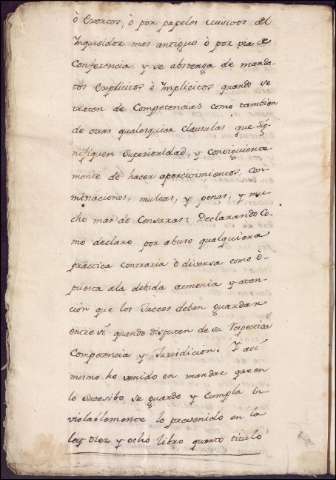 ò Exortos, ò por papeles
Inquisidor mas antiguo ò por via de
Conferencia y se abstenga de manda
tos explicitos ò Implicitos quando se
traten de Competencias como tambien
de otras qualesquier clausulas que sig
nifiquen superioridad, y consiguiente
mente de hacer apercivimientos, con
minaciones, multas, y penas, y mu
cho mas de Censuras: Declarando Co
mo declaro por abuso qualquiera
practica contraria ò diversa como ò
puesta ala debida armonia y aten
ción que los Jueces deben guardar
entre si quando disputen de su respectiva
Competencia y Jurisdicion. Y assi
mismo he venido en mandar que en
lo succesibo se guarde y Cumpla in
violablemente lo prevenido en la
Ley diez y ocho libro quarto titulo